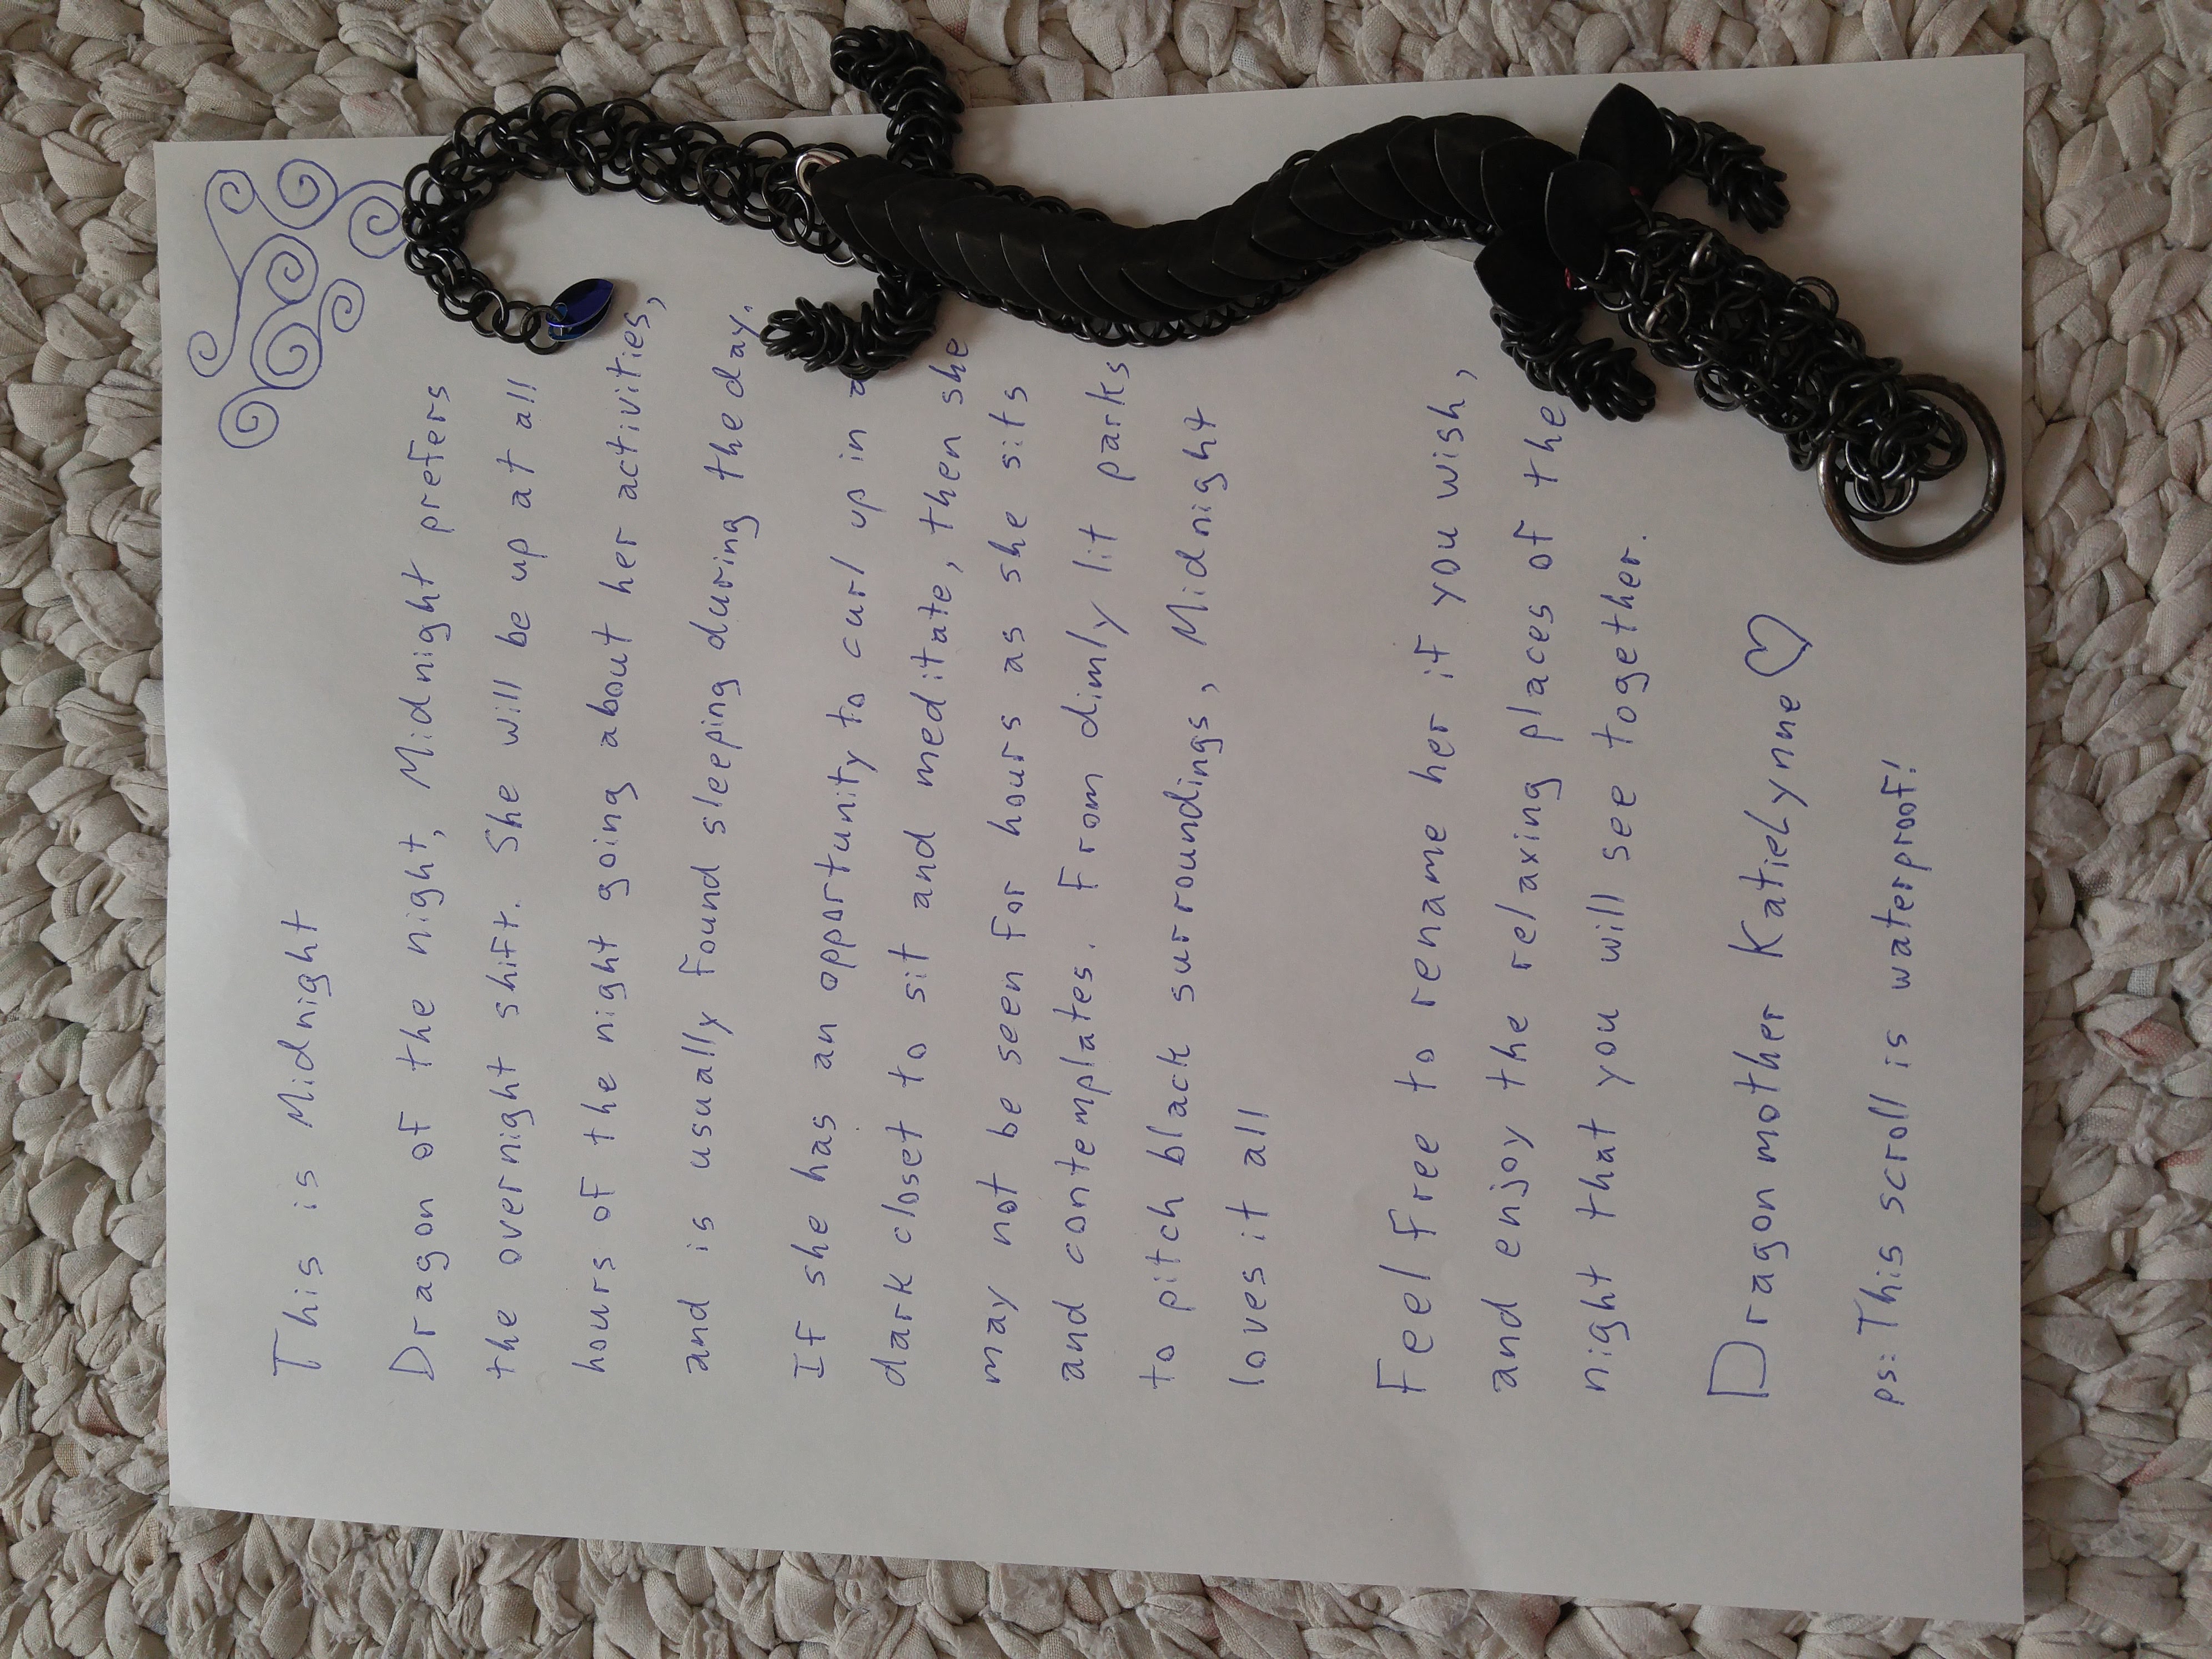 This is Midnight
Dragon of the night, Midnight prefers
the overnight shift. She will be up at all
hours of the night going about her activities,
and is usually found sleeping during the day.
If she has an opportunity to curl up in a
dark closet to sit and meditate, then she
may not be seen for hours as she sits
and contemplates. From dimly lit parks
to pitch black surroundings, Midnight
loves it all
Feel free to rename her if you wish,
and enjoy the relaxing places of the
night that you will see together.
Dragon mother KatieLynne♡
ps: This scroll is waterproof!